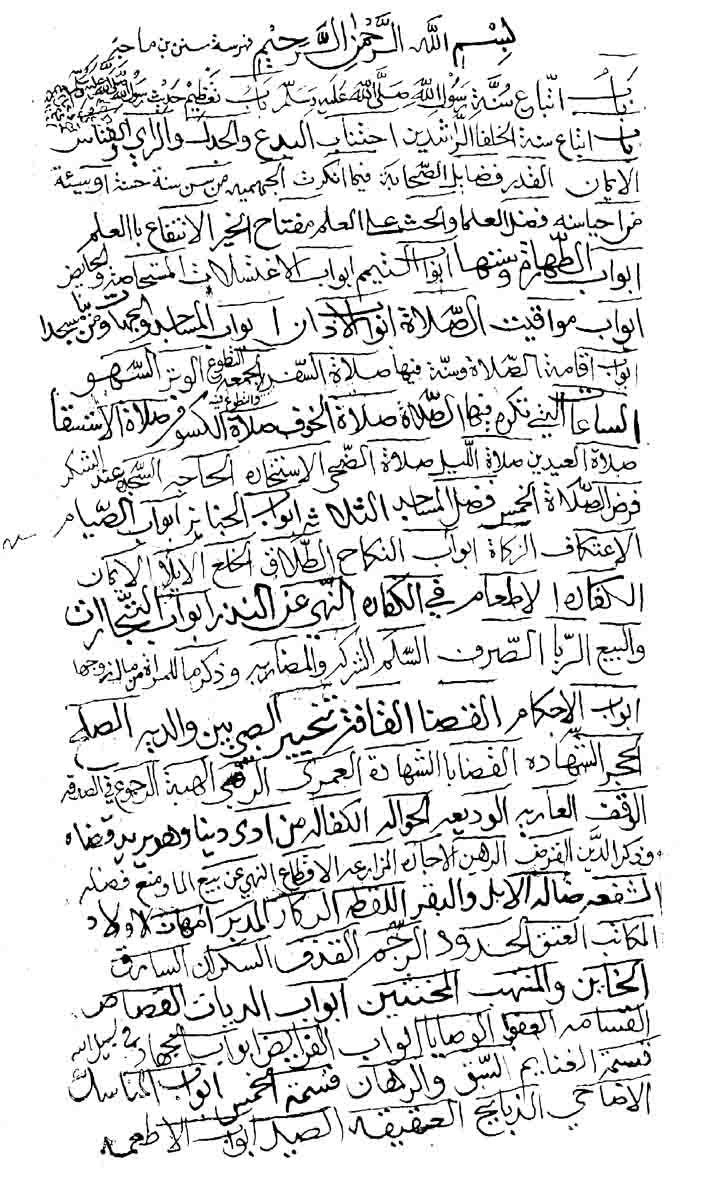 بسم الله الرحمن الرحيم فهرسة سنن بن ماجه
باب اتباع سنة رسول الله صلى الله عليه وسلم باب تعظيم حديث رسول الله صلى الله عليه وسلم
باب اتباع سنة الخلفا الراشدين اجتناب البدع والجدل والراي والقياس
الايمان القدر فضايل الصحابة فيما انكرت الجهمية من سن سنة حسنة او سيئة
من احيا سنه فضل العلما والحث على العلم مفتاح الخير الانتفاع بالعلم
ابواب الطهارة وسننها ابواب التيمم ابواب الاغتسالات المستحاضة والحايض
ابواب مواقيت الصلاة ابواب الاذان ابواب المساجد والجماعات ومن بنا مسجدا
ابواب اقامة الصلاة وسنة فيها صلاة السفر الجمعه التطوع الوتر السهو
الساعات التي تكره فيها الصلاة صلاة الخوف صلاة الكسوف صلاة الاستسقا
صلاة العيدين صلاة الليل صلاة الضحى الاستخاره الحاجه السجده عند الشكر
فرض الصلاة الخمس فضل المساجد الثلاثه ابواب الجنايز ابواب الصيام
الاعتكاف الزكاة ابواب النكاح الطلاق الخلع الايلا الايمان
الكفاره الاطعام في الكفاره النهي عن النذر ابواب التجارات
والبيع الربا الصرف السلم الشركه والمضاربه وذكر ما للمراة من مال زوجها
ابواب الاحكام القضا القافة تخيير الصبي بين والديه الصلح
الحجر الشهاده القضايا الشهادة العمرى الرقبى الهبة الرجوع في الصدقه
الوقف العاريه الوديعه الحواله الكفاله من ادى دينا وهو يريد قضاه
وذكر الدين القرض الرهن الاجاره المزارعه الاقطاع النهي عن بيع الما ومنع فضله
الشفعه ضالة الابل والبقر اللقطه الركاز المدبر امهات الاولاد
المكاتب العتق الحدود الرجم القذف السكران السارق
الخاين والمنتهب المخنثين ابواب الديات القصاص
القسامه العفو الوصايا ابواب الفرايض ابواب الجهاد في سبيل الله
قسمة الغنايم السبق والرهان قسمة الخمس ابواب المناسك
الاضاحي الذبايح العقيقه الصيد ابواب الاطعمه